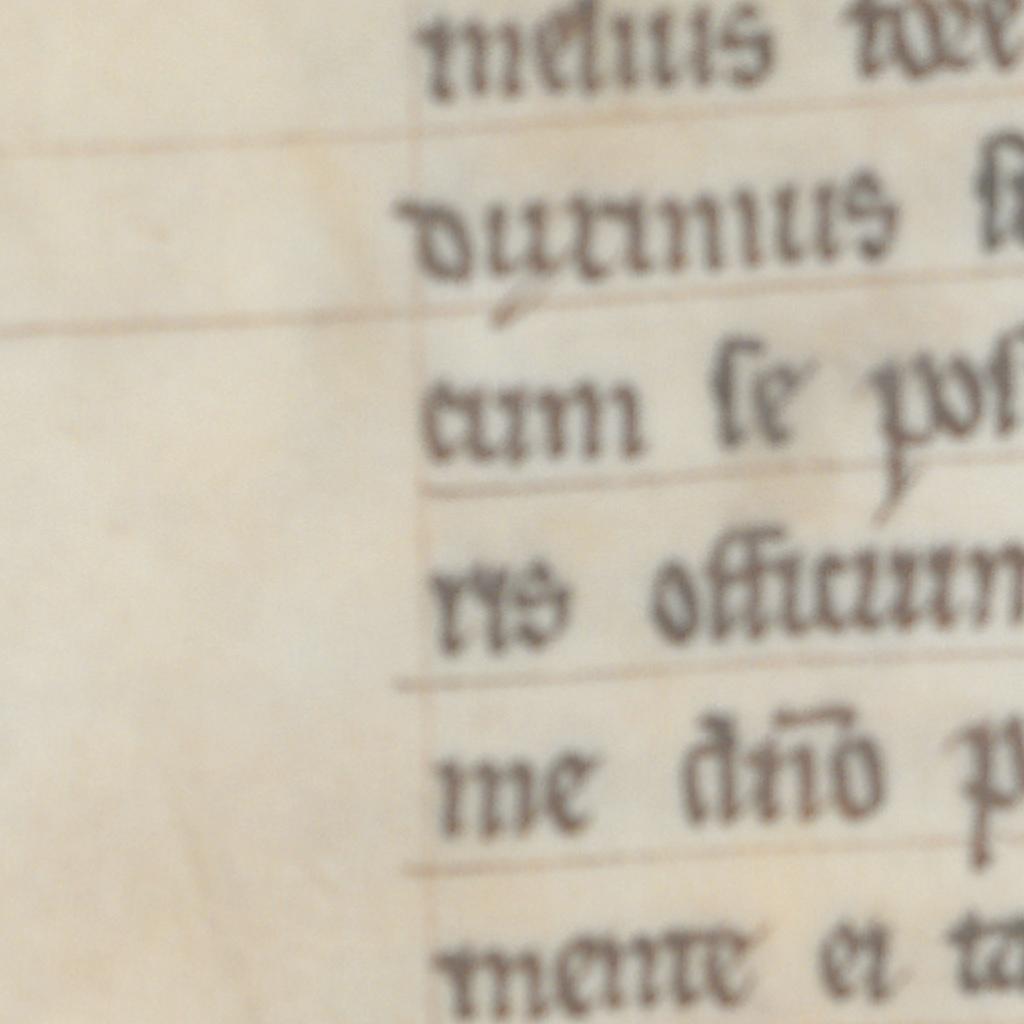 melius
duximus
cum se pos
ris officium
me dño p
mente ei ta